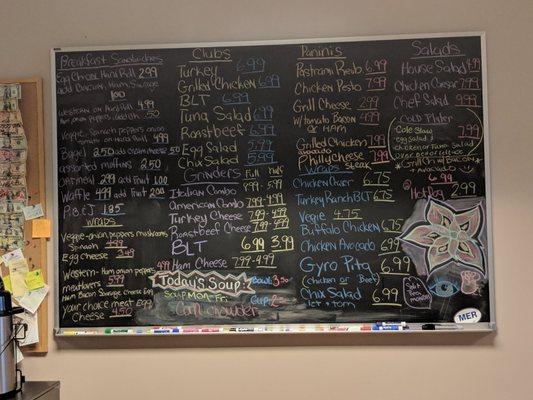 Breakfast Sandwiches
Egg Cheese Hard Roll 2.99
add Bacon, Ham Sausage
1.00
Western on Hard Roll 4.99
Veggie, Spinach peppers onion
tomato on Hard Roll 4.99
Bagel 2.50 add cream cheese
assorted muffins 2.50
Oatmeal 2.99 add Fruit 1.00
Waffle 4.99 add Fruit 2.00
P.B.&J 1.85
Wraps
Veggie-onion peppers mushrooms
Spinach 4.99
Egg Cheese 3.49
Western - Ham onion peppers 4.99
meatlovers 5.99
Ham Bacon Sausage Egg Cheese
your choice meat Egg
Cheese 4.50
Clubs
Turkey 6.99
Grilled Chicken 6.99
BLT 6.99
Tuna Salad 6.99
Roast beef 6.99
Egg Salad 5.99
Chix Salad 5.99
Grinders Full Half
Italian Combo 8.99 - 5.99
American Combo 7.99 - 4.99
Turkey Cheese 7.99 - 4.99
Roast beef Cheese 7.99 - 4.99
BLT 6.99 3.99
Ham Cheese 7.99 - 4.99
Today's Soup!
Bowl 3.50
Cup 2.
Corn chowder
Paninis
Pastrami Pesto 6.99
Chicken Pesto 7.99
Grill Cheese 4.99
w/tomato Bacon 4.99
or Ham
Grilled Chicken 7.99
avocado
Philly Cheese 7.99
Steak
Wraps
Chicken Caesar 6.75
Turkey Ranch BLT 6.75
Vegie 4.75
Buffalo Chicken 6.75
Chicken Avocado 6.99
Gyro Pita 6.99
(chicken or Beef
Chix Salad 6.99
let + tom
Salads
House Salad 4.99
Chicken Caesar 7.99
Chef Salad 8.99
Cold Plate
Cole Slaw
egg salad 7.99
Tuna or Chix Salad
over bed of lettuce
6.99
Hot Dog 2.99
MER